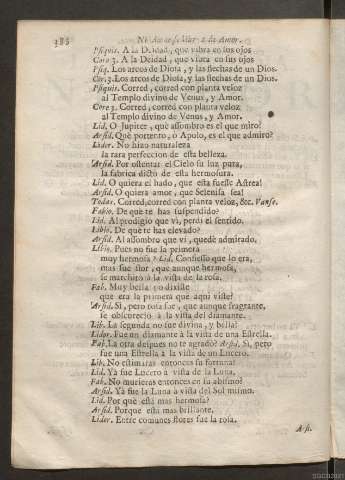 386 Ni Amor se libra de Amor.
Psiquis. A la Deidad, que vibra en sus ojos
Coro 3. A la Deidad, que vibra en sus ojos
Psiq. Los arcos de Diosa, y las flechas de un Dios.
Cor. 3. Los arcos de Diosa, y las flechas de un Dios.
Psiquis. Corred, corred con planta veloz
al Templo divino de Venus, y Amor.
Coro 3. Corred, corred con planta veloz
al Templo divino de Venus, y Amor.
Lid. O Jupiter, què assombro es el que miro!
Arsid. Què portento, ò Apolo, es el que admiro?
Lidor. No hizo naturaleza
la rara perfeccion de esta belleza.
Arsid. Por ostentar el Cielo su luz pura,
la fabrica dictò de esta hermosura.
Lid. O quiera el hado, que esta fuesse Astrea!
Arsid. O quiera amor, que Selenisa sea!
Todas. Corred, corred con planta veloz, &c. Vanse.
Fabio. De què te has suspendido?
Lid. Al prodigio que vì, perdì el sentido.
Libio. De què te has elevado?
Arsid. Al assombro que vì, quedè admirado.
Libio. Pues no fue la primera
muy hermosa? Lid. Confiesso que lo era,
mas fue flor, que aunque hermosa,
se marchitò à la vista de la rosa.
Fab. Muy bella no dixiste
que era la primera que aqui viste?
Arsid. Sì, pero rosa fue, que aunque fragrante,
se obscureciò à la vista del diamante.
Lib. La segunda no fue divina, y bella?
Lidor. Fue un diamante à la vista de una Estrella.
Fab. La otra despues no te agradò? Arsid. Sì, pero
fue una Estrella à la vista de un Lucero.
Lib. No estimàras entonces su fortuna?
Lid. Yà fue Lucero à vista de la Luna.
Fab. No murieras entonces en su abismo?
Arsid. Yà fue la Luna à vista del Sol mismo.
Lid. Por què esta mas hermosa?
Arsid. Porque esta mas brillante.
Lidor. Entre comunes flores fue la rosa.
Arsi.